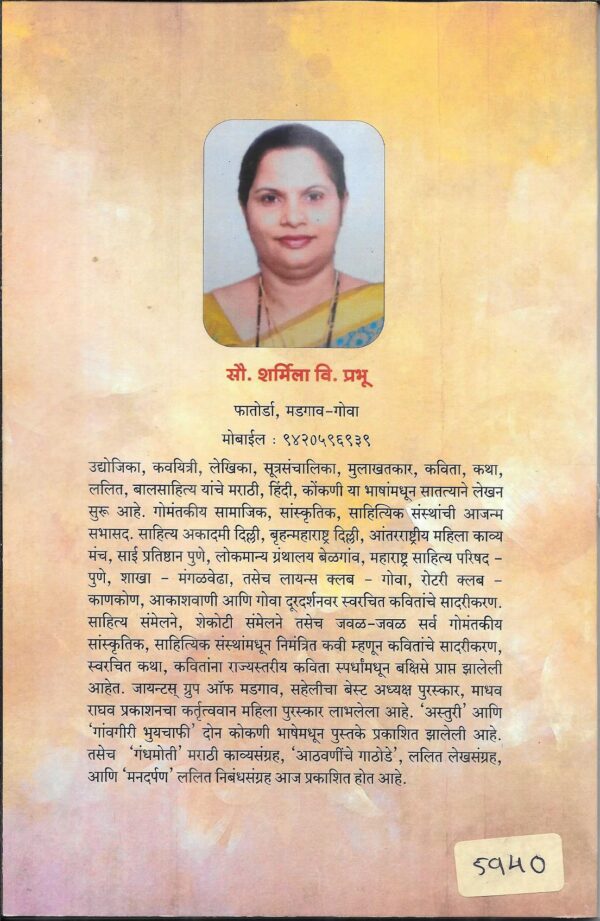 सौ. शर्मिला वि. प्रभू
फातोर्डा, मडगाव-गोवा
मोबाईल : ९४२०५९६९३९
उद्योजिका, कवयित्री, लेखिका, सूत्रसंचालिका, मुलाखतकार, कविता, कथा,
ललित, बालसाहित्य यांचे मराठी, हिंदी, कोंकणी या भाषांमधून सातत्याने लेखन
सुरू आहे. गोमंतकीय सामाजिक, सांस्कृतिक, साहित्यिक संस्थांची आजन्म
सभासद. साहित्य अकादमी दिल्ली, बृहन्महाराष्ट्र दिल्ली, आंतरराष्ट्रीय महिला काव्य
मंच, साई प्रतिष्ठान पुणे, लोकमान्य ग्रंथालय बेळगांव, महाराष्ट्र साहित्य परिषद -
पुणे, शाखा - मंगळवेढा, तसेच लायन्स क्लब - गोवा, रोटरी क्लब -
काणकोण, आकाशवाणी आणि गोवा दूरदर्शनवर स्वरचित कवितांचे सादरीकरण.
साहित्य संमेलने, शेकोटी संमेलने तसेच जवळ-जवळ सर्व गोमंतकीय
सांस्कृतिक, साहित्यिक संस्थांमधून निमंत्रित कवी म्हणून कवितांचे सादरीकरण,
स्वरचित कथा, कवितांना राज्यस्तरीय कविता स्पर्धांमधून बक्षिसे प्राप्त झालेली
आहेत. जायन्टस् ग्रुप ऑफ मडगाव, सहेलीचा बेस्ट अध्यक्ष पुरस्कार, माधव
राघव प्रकाशनचा कर्तृत्ववान महिला पुरस्कार लाभलेला आहे. ‘अस्तुरी’ आणि
‘गांवगीरी भुयचाफी’ दोन कोकणी भाषेमधून पुस्तके प्रकाशित झालेली आहे.
तसेच ‘गंधमोती’ मराठी काव्यसंग्रह, ‘आठवणींचे गाठोडे’, ललित लेखसंग्रह,
आणि ‘मनदर्पण’ ललित निबंधसंग्रह आज प्रकाशित होत आहे.
5940